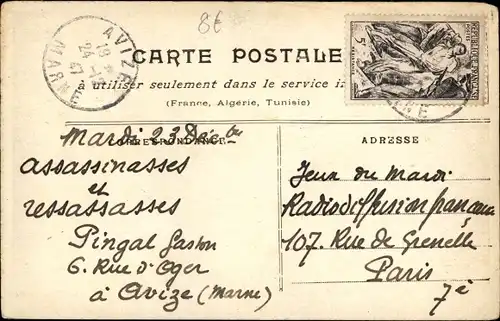 8€
AVIZE
18
24-12
47
MARNE
CARTE POSTALE
à utiliser seulement dans le service
(France, Algérie, Tunisie)
CORRESPONDANCE
ADRESSE
Mardi 23 Décbre
assassinasses
et
ressassasses
Pingal Gaston
6. Rue d'Oger
à Avize (Marne)
Jeux du Mardi
Radiodiffusion française
107. Rue de Grenelle
Paris
7è
5F
RÉPUBLIQUE FRANÇAISE
POSTES